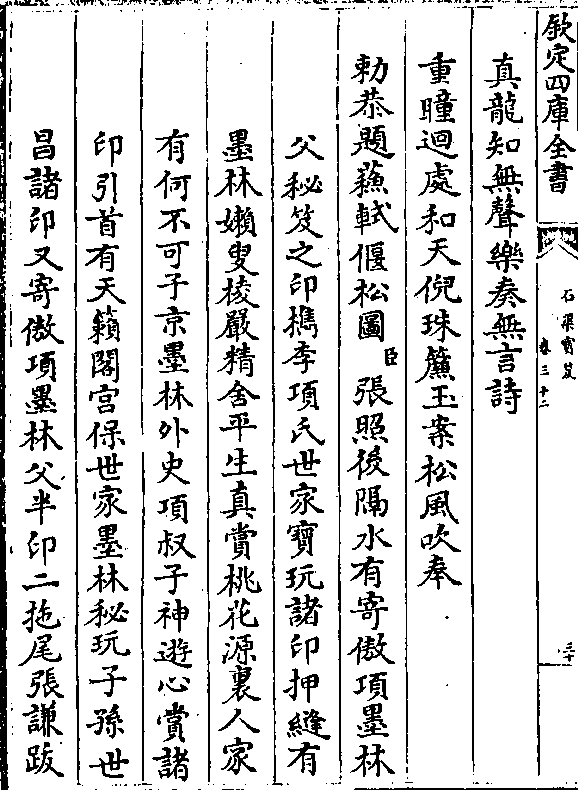 欽定四庫全書
石渠寶笈
卷三十二
三十
真龍知無聲樂奏無言詩
重瞳迴處和天倪珠簾玉案松風吹奉
勅恭題蘇軾偃松圖臣張照後隔水有寄傲項墨林
父秘笈之印檇李項氏世家寶玩諸印押縫有
墨林嬾叟棱嚴精舍平生真賞桃花源裏人家
有何不可子京墨林外史項叔子神遊心賞諸
印引首有天籟閣宮保世家墨林秘玩子孫世
昌諸印又寄傲項墨林父半印二拖尾張謙跋